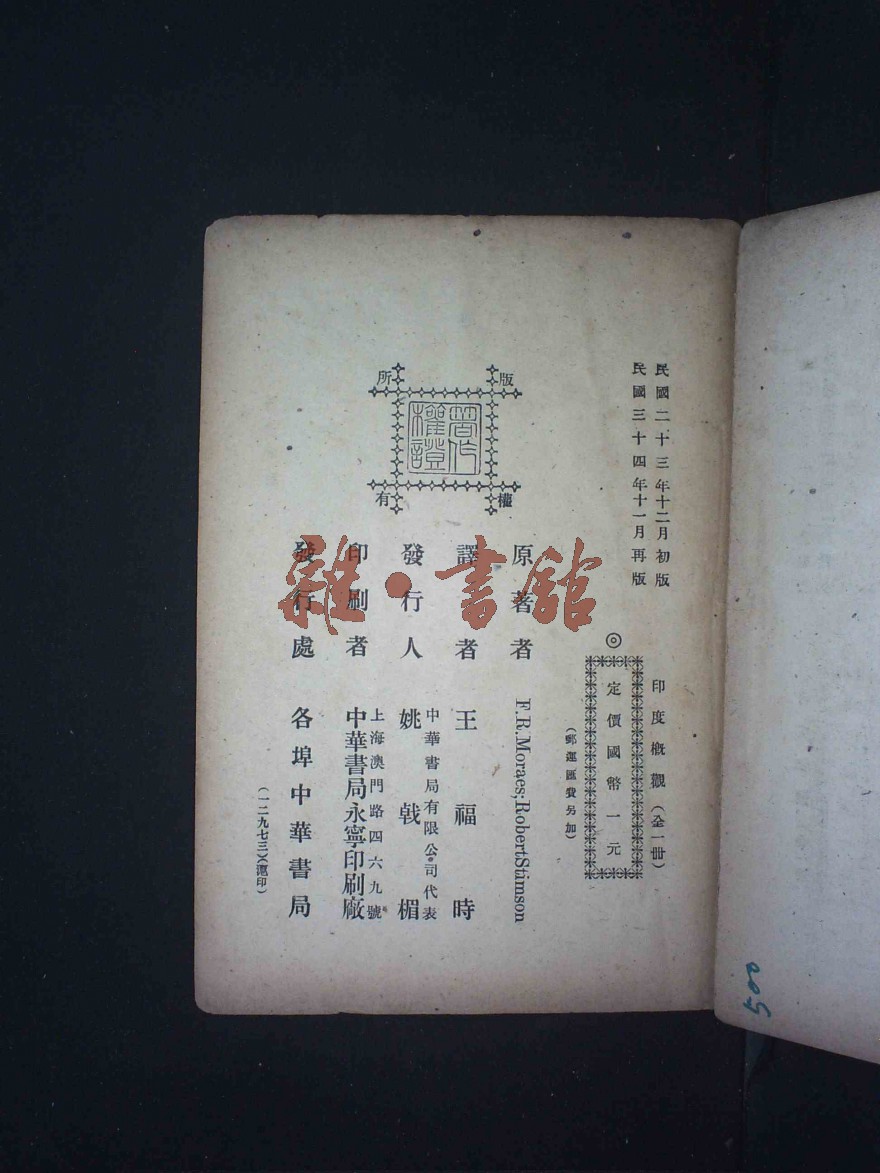 民國二十三年十二月初版
民國三十四年十一月再版
印度概觀(全一冊)
◎
定價國幣一元
(郵運匯費另加)
版權所有
著作權證
原著者 F.R.Moraes;Robert Stimson
譯者 王福時
發行人 中華書局有限公司代表
姚戟楣
印刷者 上海澳門路四六九號
中華書局永寧印刷廠
發行處 各埠中華書局
(一二九七三)(滬印)
雜·書館
500